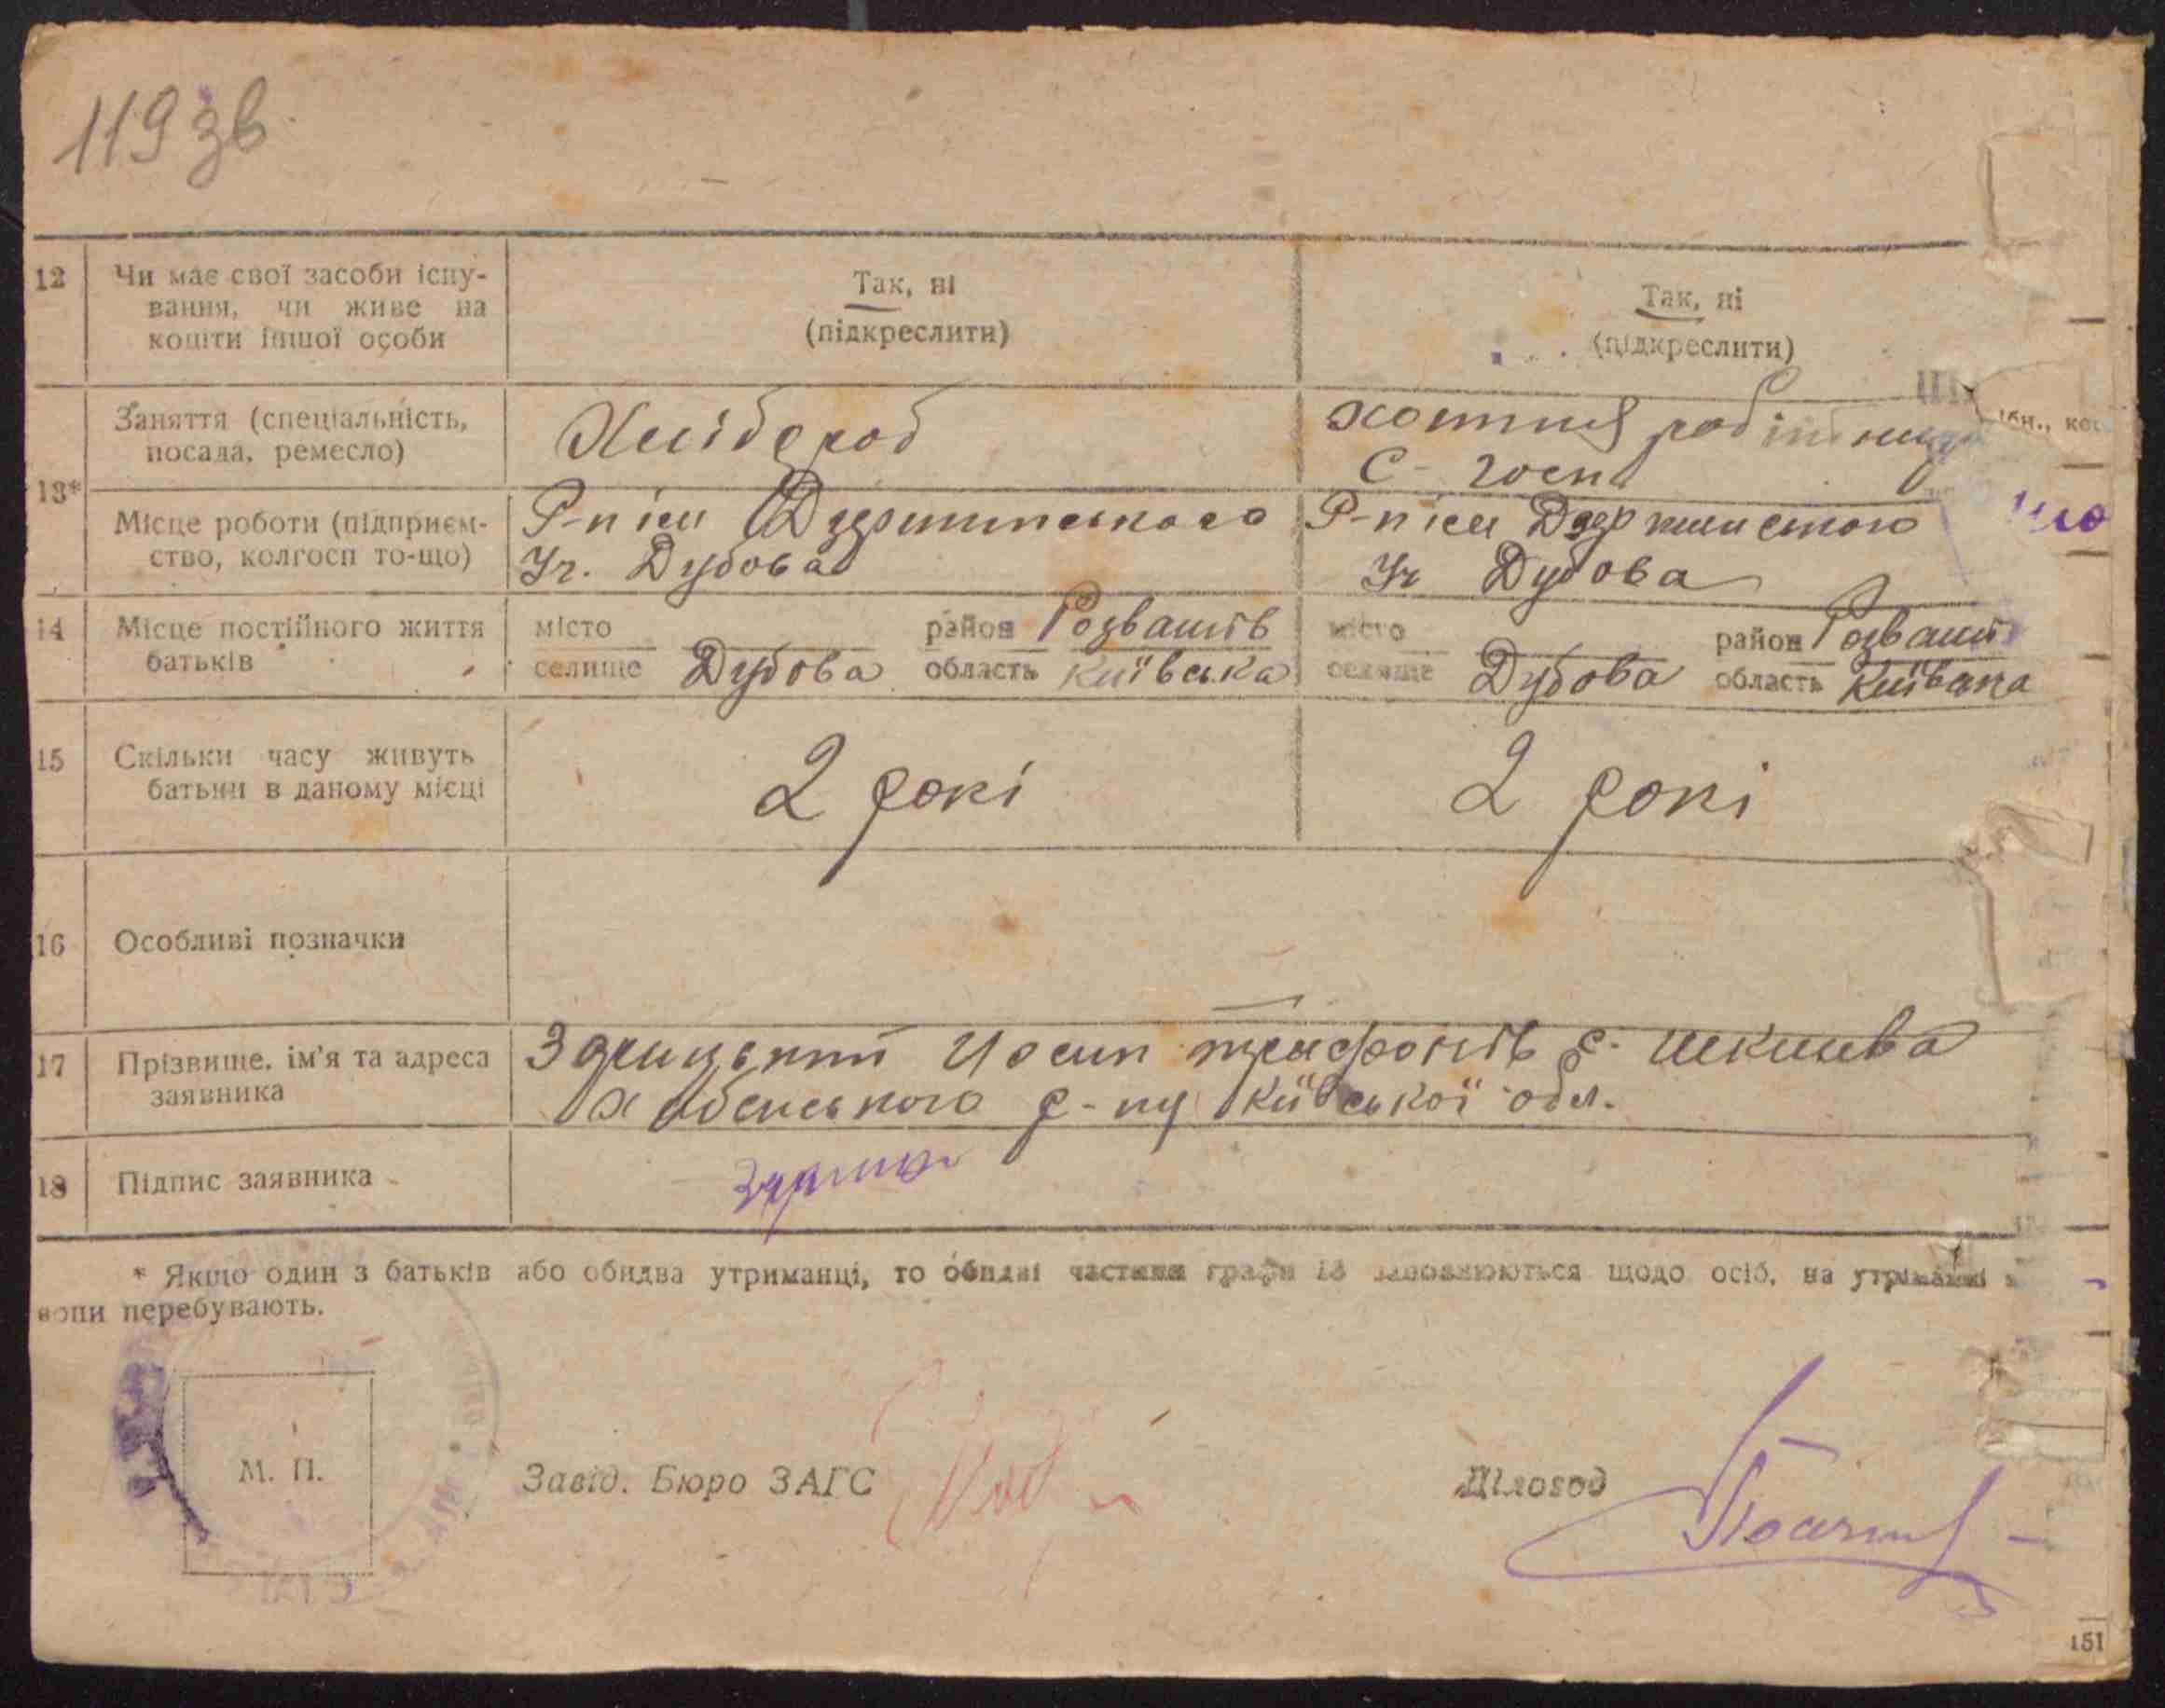 119 зв
12 Чи має свої засоби існу-
вання, чи живе на
кошти іншої особи
Так, ні
(підкреслити)
Так, ні
(підкреслити)
13*
Заняття (спеціальність,
посада, ремесло)
Хлібороб
хотння робітниця
С-госп
Місце роботи (підприєм-
ство, колгосп то-що)
Р-п ім Дзержинського
Уч. Дубова
Р-п ім Дзержинського
Уч Дубова
14 Місце постійного життя
батьків
місто
селище Дубова
район Розважів
область Київська
місто
селище Дубова
район Розваж
область Київська
15 Скільки часу живуть
батьки в даному місці
2 рокі
2 рокі
16 Особливі позначки
17 Прізвище, ім'я та адреса
заявника
Йосип с.
Хабенського р-ну Київської обл.
18 Підпис заявника
* Якщо один з батьків або обидва утриманці, то обидві частини графи 13 заповнюються щодо осіб, на утриманні
вони перебувають.
М. П.
Завід. Бюро ЗАГС
Діловод
151